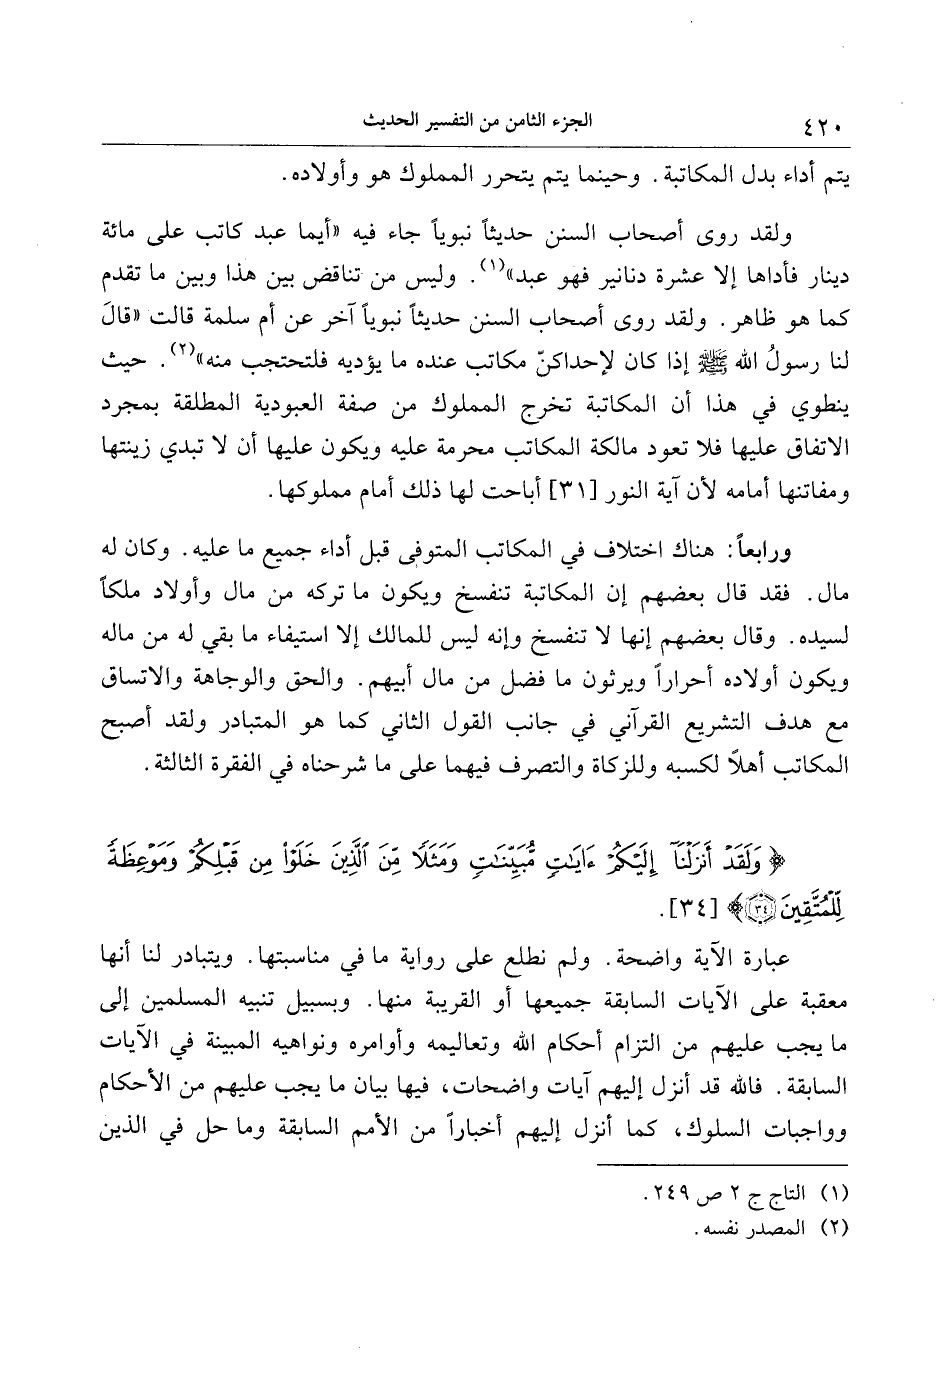 ٤٢٠ الجزء الثامن من التفسير الحديث
يتم أداء بدل المكاتبة. وحينما يتم يتحرر المملوك هو وأولاده.
ولقد روى أصحاب السنن حديثاً نبوياً جاء فيه «أيما عبد كاتب على مائة
دينار فأداها إلا عشرة دنانير فهو عبد»(١). وليس من تناقض بين هذا وبين ما تقدم
كما هو ظاهر. ولقد روى أصحاب السنن حديثاً نبوياً آخر عن أم سلمة قالت «قالَ
لنا رسولُ الله ﷺ إذا كان لإحداكنّ مكاتب عنده ما يؤديه فلتحتجب منه»(٢). حيث
ينطوي في هذا أن المكاتبة تخرج المملوك من صفة العبودية المطلقة بمجرد
الاتفاق عليها فلا تعود مالكة المكاتب محرمة عليه ويكون عليها أن لا تبدي زينتها
ومفاتنها أمامه لأن آية النور [٣١] أباحت لها ذلك أمام مملوكها.
ورابعاً: هناك اختلاف في المكاتب المتوفى قبل أداء جميع ما عليه. وكان له
مال. فقد قال بعضهم إن المكاتبة تنفسخ ويكون ما تركه من مال وأولاد ملكاً
لسيده. وقال بعضهم إنها لا تنفسخ وإنه ليس للمالك إلا استيفاء ما بقي له من ماله
ويكون أولاده أحراراً ويرثون ما فضل من مال أبيهم. والحق والوجاهة والاتساق
مع هدف التشريع القرآني في جانب القول الثاني كما هو المتبادر ولقد أصبح
المكاتب أهلاً لكسبه وللزكاة والتصرف فيهما على ما شرحناه في الفقرة الثالثة.
﴿وَلَقَدْ أَنزَلْنَآ إِلَيْكُمْ ءَايَٰتٍ مُّبَيِّنَٰتٍ وَمَثَلًا مِّنَ ٱلَّذِينَ خَلَوْا۟ مِن قَبْلِكُمْ وَمَوْعِظَةً
لِّلْمُتَّقِينَ ٣٤﴾ [٣٤].
عبارة الآية واضحة. ولم نطلع على رواية ما في مناسبتها. ويتبادر لنا أنها
معقبة على الآيات السابقة جميعها أو القريبة منها. وبسبيل تنبيه المسلمين إلى
ما يجب عليهم من التزام أحكام الله وتعاليمه وأوامره ونواهيه المبينة في الآيات
السابقة. فالله قد أنزل إليهم آيات واضحات، فيها بيان ما يجب عليهم من الأحكام
وواجبات السلوك، كما أنزل إليهم أخباراً من الأمم السابقة وما حل في الذين
(١) التاج ج ٢ ص ٢٤٩.
(٢) المصدر نفسه.